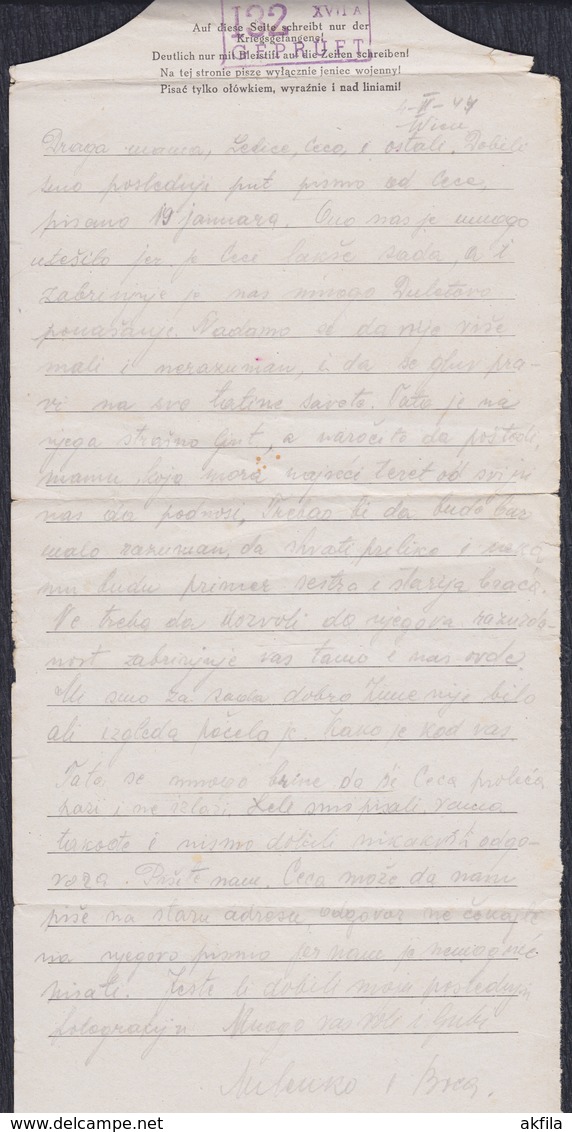 132 XVII A
Auf diese Seite schreibt nur der
Kriegsgefangene!
GEPRÜFT
Deutlich nur mit Bleistift auf die Zeilen schreiben!
Na tej stronie pisze wyłącznie jeniec wojenny!
Pisać tylko ołówkiem, wyraźnie i nad liniami!
44
Wien
Draga mama, Ceco, i ostali. Dobili
smo poslednji put pismo od Cece,
pisano 19 januara. Ono nas je mnogo
utešilo jer je Ceci lakše sada, a i
zabrinjuje je nas mnogo Duletovo
ponašanje. Nadamo se da nije više
mali i nerazuman, i da se gluv pra-
vi na sve tatine savete. Tata je na
njega strašno ljut, a naročito da poštedi
mamu koja mora najveći teret od sviju
nas da podnosi, Trebao bi da bude bar
malo razuman, da shvati prilike i neka
mu budu primer sestra i starija braća.
Ne treba da dozvoli da njegova
nost zabrinjuje vas tamo i nas ovde.
Mi smo za sada dobro Zime nije bilo
ali izgleda počela je. Kako je kod vas
Tata se mnogo brine da se Ceca
pazi i ne izlazi. smo pisali vama
takođe i nismo dobili nikakvih odgo-
vora. Pišite nam. Ceca može da nam
piše na staru adresu, odgovor ne čekajte
na njegovo pismo jer nam je nemoguće
pisati. Jeste li dobili moju poslednju
fotografiju Mnogo vas voli i ljubi
Milenko i Boca.
akfila